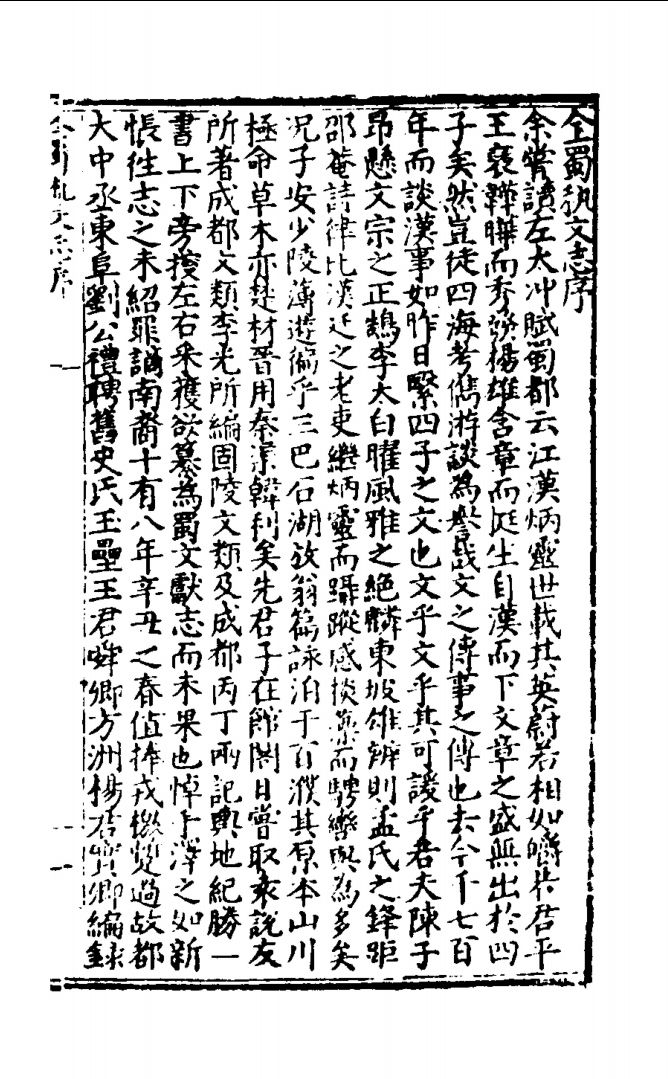 全蜀秇文志序
余嘗讀左太沖賦蜀都云江漢炳靈世載其英蔚若相如皭若君平
王襃韡曄而秀發楊雄含章而挺生自漢而下文章之盛無出於四
子矣然豈徒四海考儁游談為譽哉文之傳事之傳也去今千七百
年而談漢事如昨日繄四子之文也文乎文乎其可諼乎若夫陳子
昂懸文宗之正鵠李太白曜風雅之絕麟東坡雄辨則孟氏之鋒距
邵菴詩律比漢廷之老吏繼炳靈而躡蹤感掞藻而騁轡與為多矣
况子安少陵薄遊徧乎三巴石湖放翁篇詠洎于百濮其原本山川
極命草木亦楚材晉用秦渠韓利矣先君子在館閣日嘗取袁說友
所著成都文類李光所編固陵文類及成都丙丁兩記輿地紀勝一
書上下旁搜左右采獲欲纂為蜀文獻志而未果也悼手澤之如新
悵往志之未紹罪謫南裔十有八年辛丑之春值捧戎檄蹔過故都
大中丞東阜劉公禮聘舊史氏玉壘王君舜卿方洲楊君實卿編錄
全蜀秇文志序